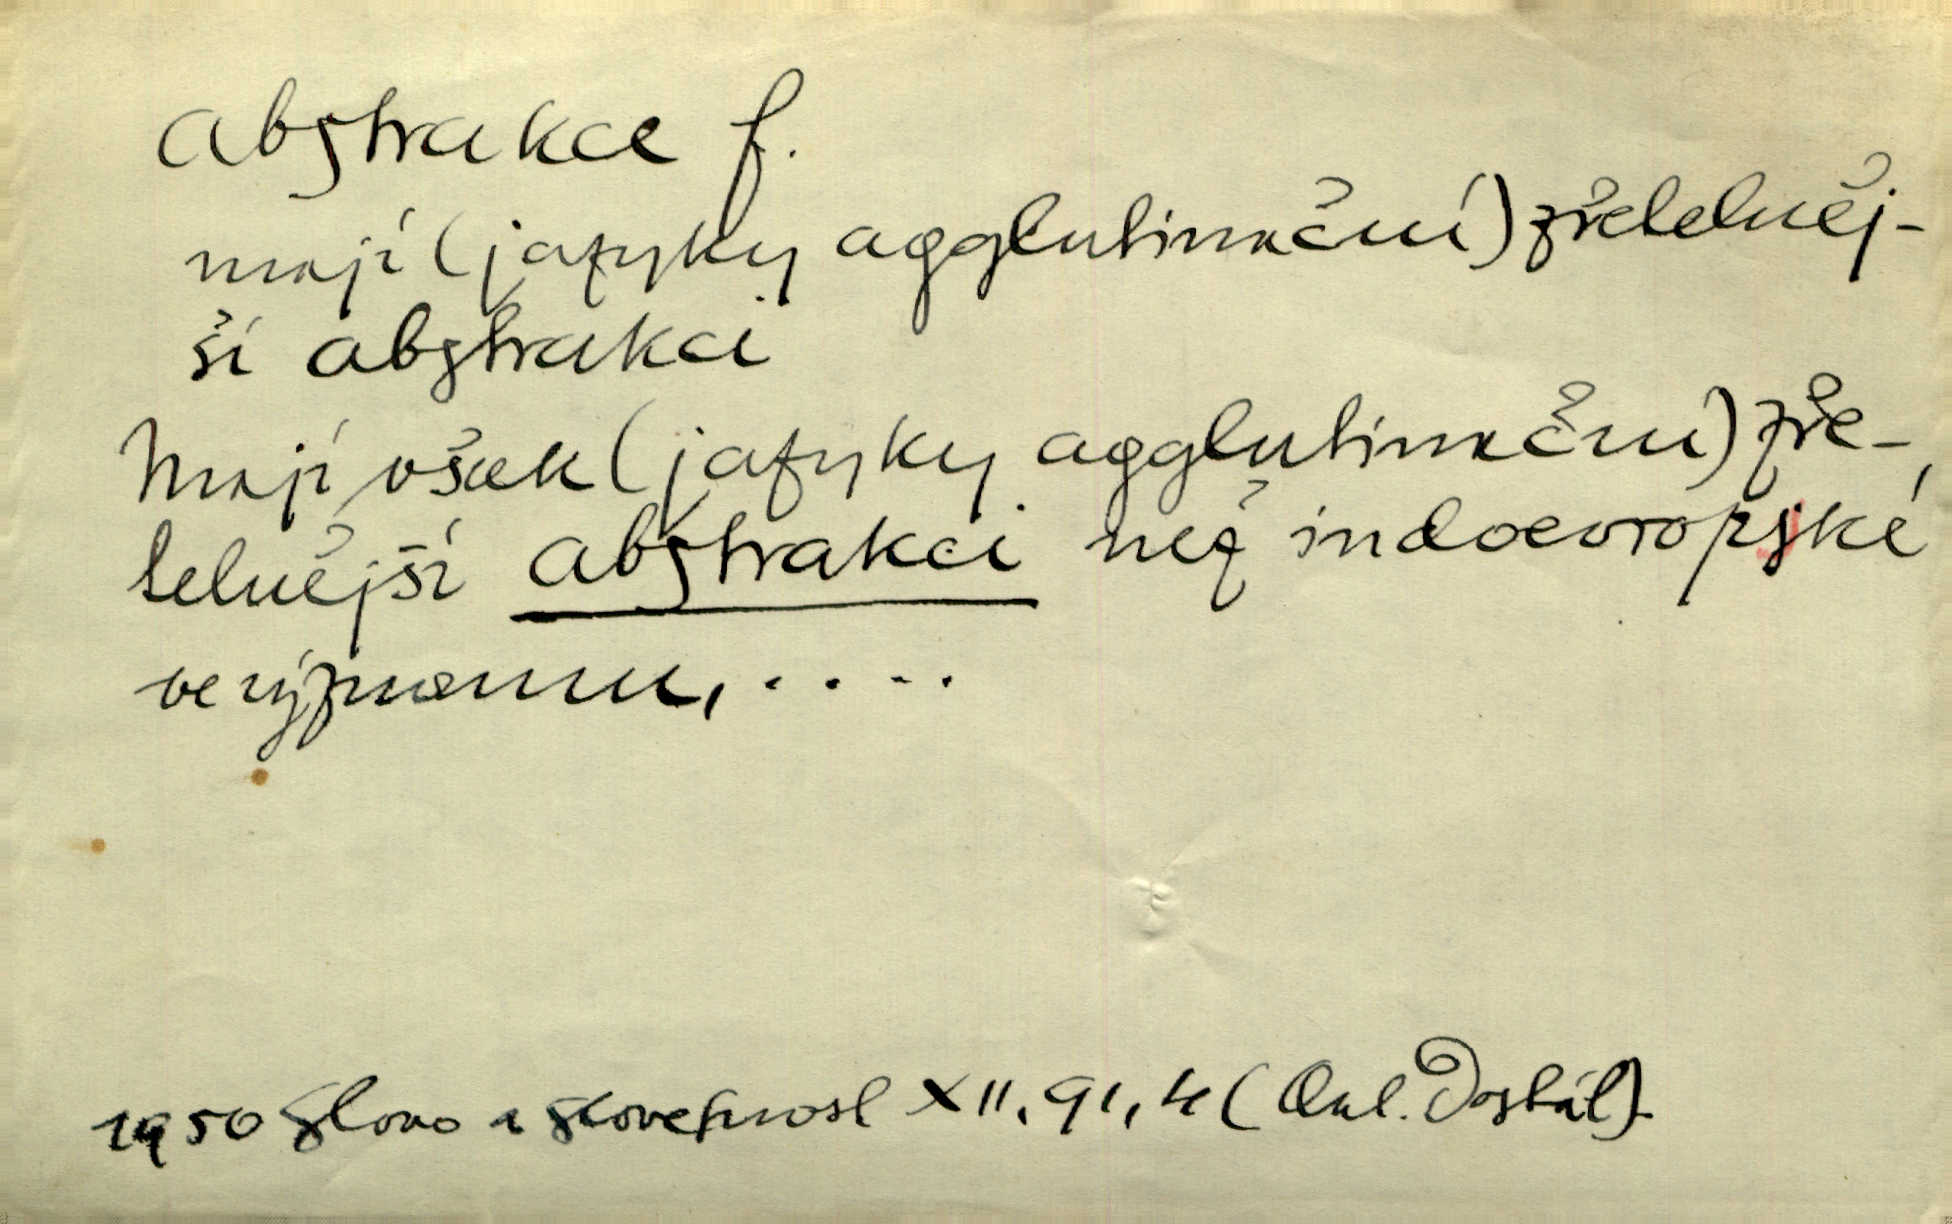 abstrakce f.
mají (jazyky agglutinační) zřetelněj-
ší abstrakci
Mají však (jazyky agglutinační) zře-
telnější abstrakci než indoevropské
ve významu, . . . .
1950 Slovo a slovesnost XII, 91, 4 (Ant. Dostál).